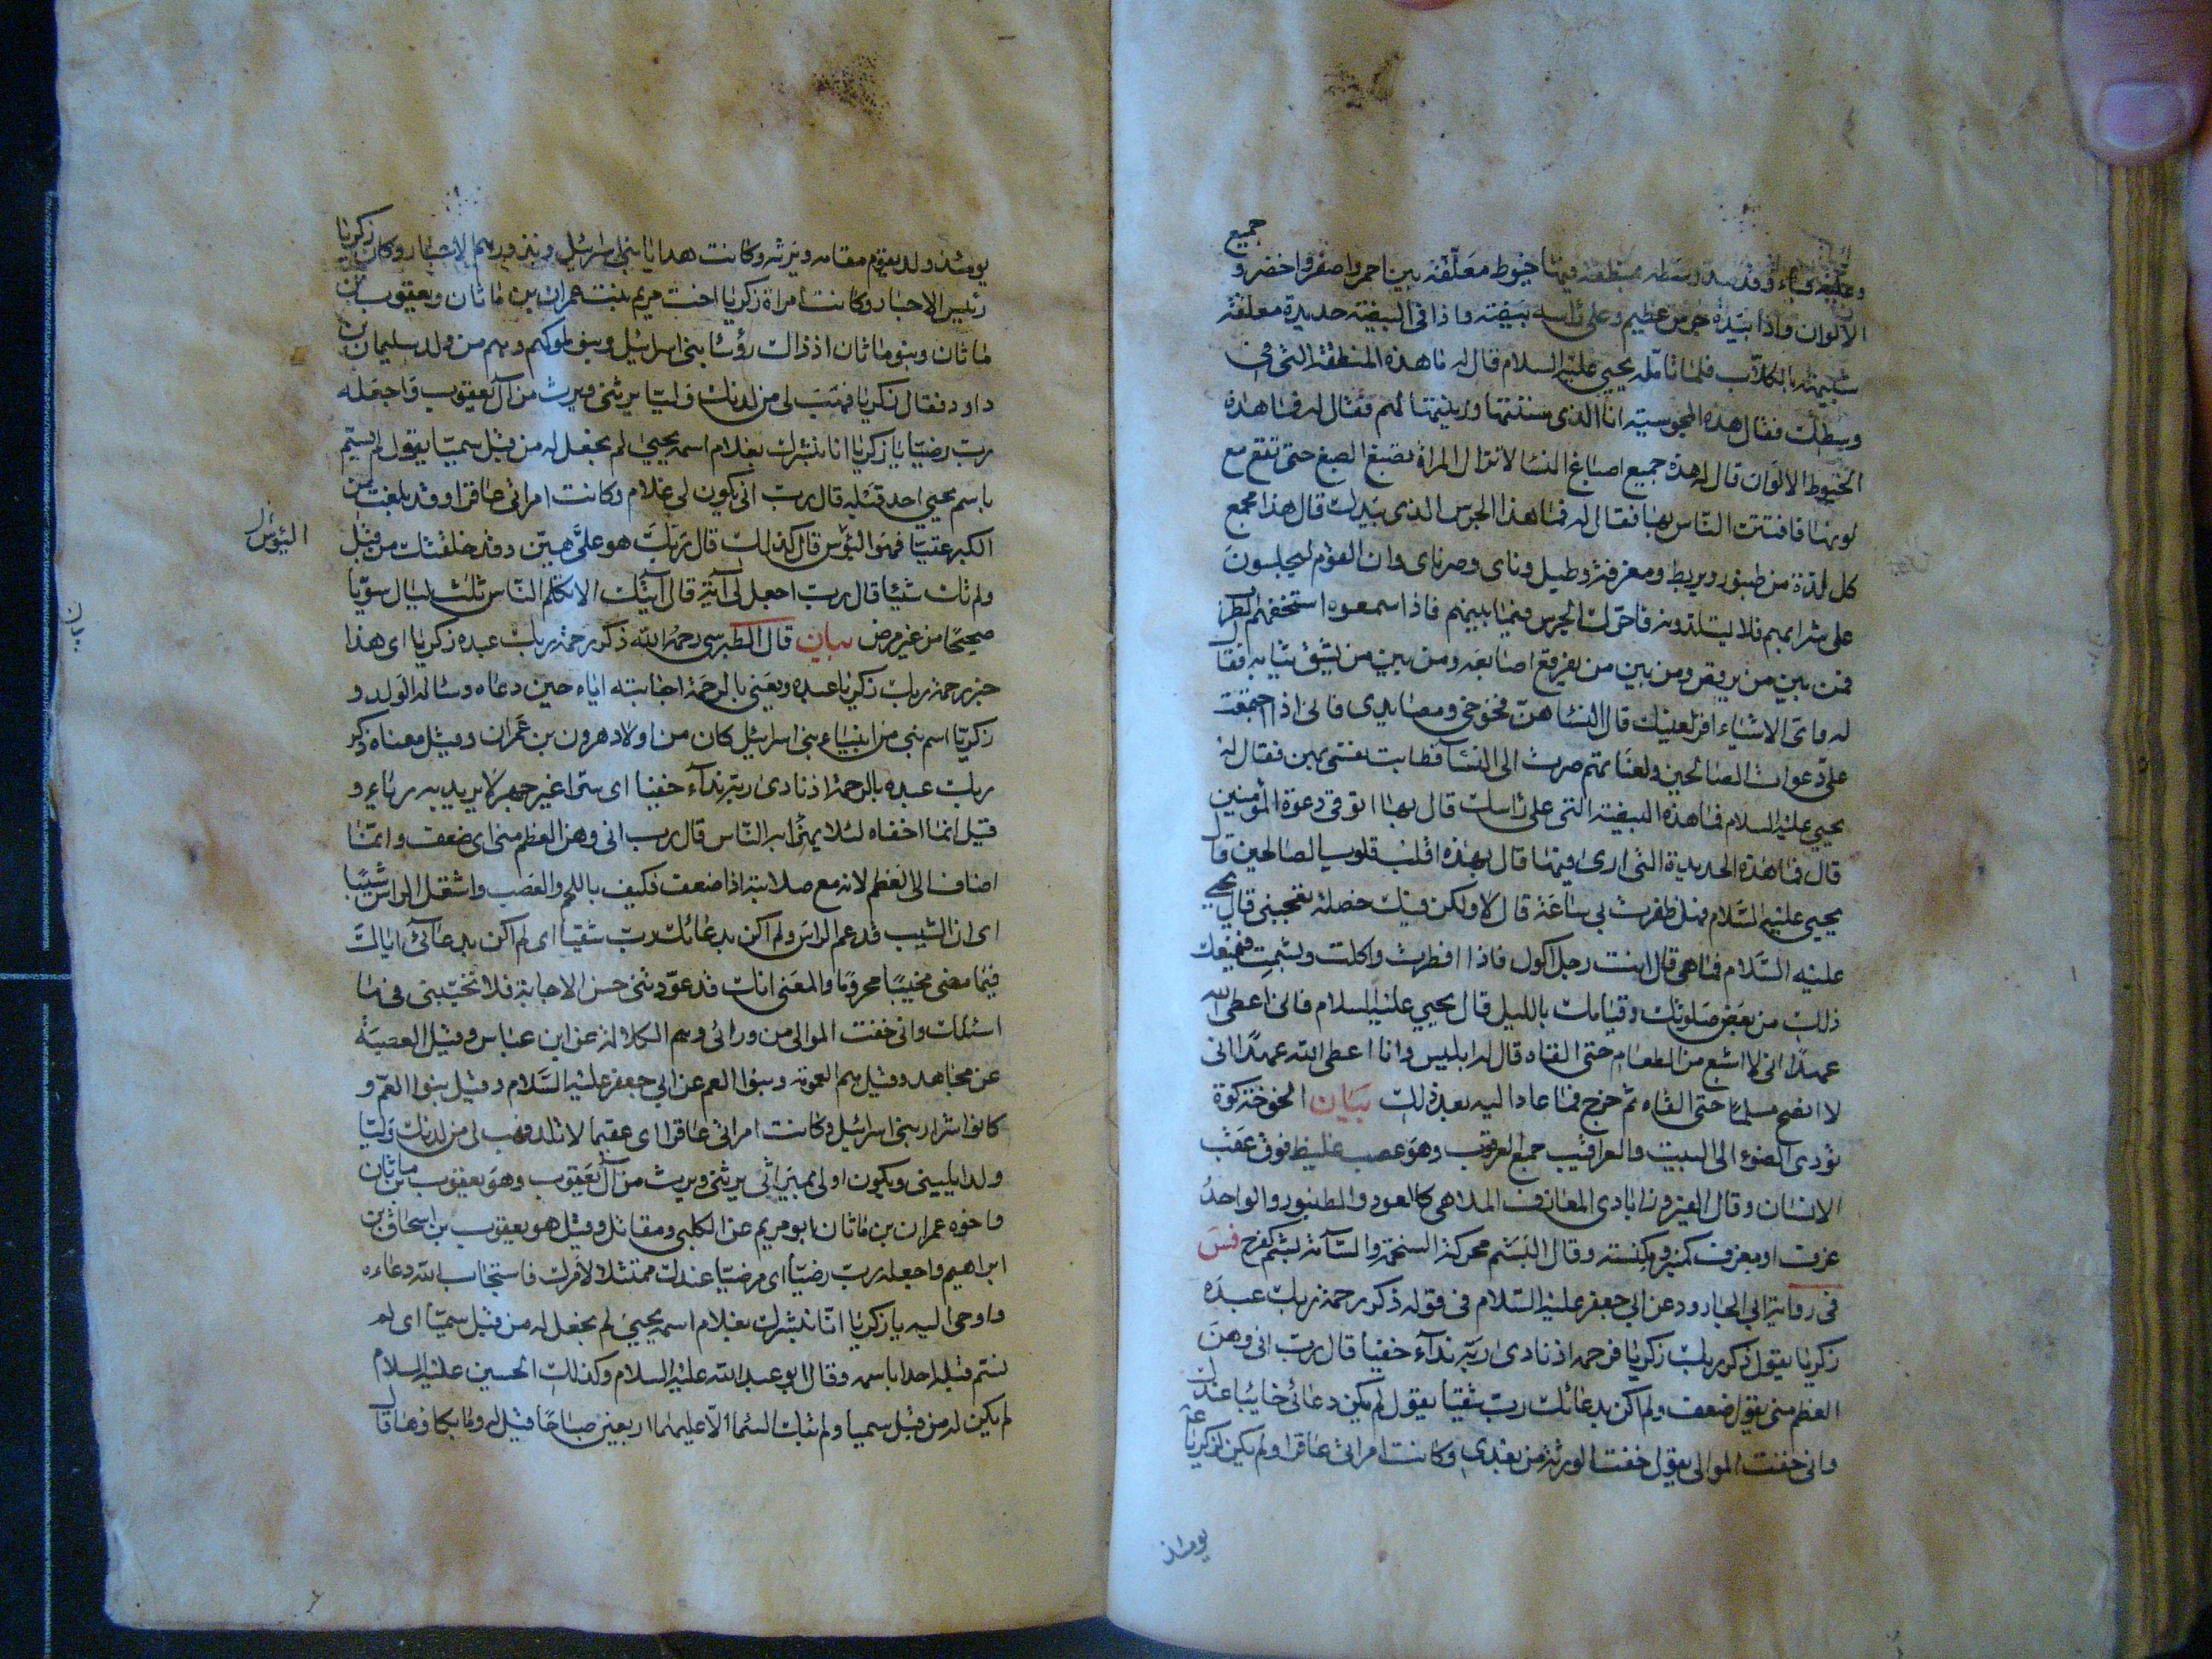 جميع
وعليه قباء وقد شد وسطه بمنطقة فيها خيوط معلقة بين احمر واصفر واخضر و
الالوان واذا بيده جرس عظيم وعلى راسه بيضة واذا في البيضة حديدة معلقة
شبيهة بالكلاب فلما تامله يحيي عليه السلام قال له ما هذه المنطقة التي في
وسطك فقال هذه المجوسية انا الذي سننتها وزينتها لهم فقال له فما هذه
الخيوط الالوان قال له هذه جميع اصباغ النسا لا تزال المراة تصبغ الصبغ حتى تقع مع
لونها فافتتن الناس بها فقال له فما هذا الجرس الذي بيدك قال هذا مجمع
كل لذة من طنبور وبربط ومعزفة وطبل وناى وصرناى وان القوم ليجلسون
على شرابهم فلا يستلذونه فاحرك الجرس فيما بينهم فاذا سمعوه استخفهم الطرب
فمن بين من يرقص ومن بين من يفرقع اصابعه ومن بين من يشق ثيابه فقال
له واى الاشياء اقر لعينك قال النسا هن فخوخي ومصايدي فاني اذا اجتمعت
علي دعوات الصالحين ولعناتهم صرت الى النسا فطابت نفسي بهن فقال له
يحيي عليه السلام فما هذه البيضة التي على راسك قال بها اتوقى دعوة المؤمنين
قال فما هذه الحديدة التي ارى فيها قال بهذه اقلب قلوب الصالحين قال
يحيي عليه السلام فهل ظفرت بي ساعة قال لا ولكن فيك خصلة تعجبني قال يحيي
عليه السلام فما هي قال انت رجل اكول فاذا افطرت واكلت وبشمت فيمنعك
ذلك من بعض صلوتك وقيامك بالليل قال يحيي عليه السلام فاني اعطي الله
عهدا اني لا اشبع من الطعام حتى القاه قال له ابليس وانا اعطي الله عهدا اني
لا انصح مسلما حتى القاه ثم خرج فما عاد اليه بعد ذلك بيان الخوخة كوة
تؤدي الضوء الى البيت والعراقيب جمع العرقوب وهو عصب غليظ فوق عقب
الانسان وقال الفيروزابادي المعازف الملاهي كالعود والطنبور والواحد
عزف او معزف كمنبر ومكنسة وقال البشم محركة التخمة والسآمة بشم كفرح فس
في رواية ابي الجارود عن ابي جعفر عليه السلام في قوله ذكر رحمة ربك عبده
زكريا يقول ذكر ربك زكريا فرحمه اذ نادى ربه نداء خفيا قال رب اني وهن
العظم مني يقول ضعف ولم اكن بدعائك رب شقيا يقول لم يكن دعائي خائبا عندك
واني خفت الموالي يقول خفت الورثة من بعدي وكانت امراتي عاقرا ولم يكن لزكريا ع
يومئذ
يومئذ ولد يقوم مقامه ويرثه وكانت هدايا بني اسرائيل ونذورهم للاحبار وكان زكريا
رئيس الاحبار وكانت امراة زكريا اخت مريم بنت عمران بن ماثان ويعقوب بن
ماثان وبنو ماثان اذ ذاك رؤسا بني اسرائيل وبنو ملوكهم وهم من ولد سليمان بن
داود فقال زكريا فهب لي من لدنك وليا يرثني ويرث من آل يعقوب واجعله
رب رضيا يا زكريا انا نبشرك بغلام اسمه يحيي لم نجعل له من قبل سميا يقول لم يسم
باسم يحيي احد قبله قال رب انى يكون لي غلام وكانت امراتي عاقرا وقد بلغت من
الكبر عتيا فهو اليؤس قال كذلك قال ربك هو علي هين وقد خلقتك من قبل
اليؤس
ولم تك شيئا قال رب اجعل لي آية قال آيتك الا تكلم الناس ثلث ليال سويا
صحيحا من غير مرض بيان قال الطبرسي رحمه الله ذكر رحمة ربك عبده زكريا اى هذا
خبر رحمة ربك زكريا عبده ويعني بالرحمة اجابته اياه حين دعاه وساله الولد و
زكريا اسم نبي من انبياء بني اسرائيل كان من اولاد هرون بن عمران وقيل معناه ذكر
ربك عبده بالرحمة اذ نادى ربه نداء خفيا اى سرا غير جهر لا يريد به رياء و
قيل انما اخفاه لئلا يهزأ به الناس قال رب اني وهن العظم مني اى ضعف وانما
اضاف الى العظم لانه مع صلابته اذا ضعف فكيف باللحم والعصب واشتعل الراس شيبا
اى ان الشيب قد عم الراس ولم اكن بدعائك رب شقيا اى لم اكن بدعائي اياك
فيما مضى مخيبا محروما والمعنى انك قد عودتني حسن الاجابة فلا تخيبني فيما
اسئلك واني خفت الموالي من ورائي وهم الكلالة عن ابن عباس وقيل العصبة
عن مجاهد وقيل هم العمومة وبنوا العم عن ابي جعفر عليه السلام وقيل بنوا العم و
كانوا شرار بني اسرائيل وكانت امراتي عاقرا اى عقيما لا تلد فهب لي من لدنك وليا
ولدا يليني ويكون اولى بميراثي يرثني ويرث من آل يعقوب وهو يعقوب بن ماثان
واخوه عمران بن ماثان ابو مريم عن الكلبي ومقاتل وقيل هو يعقوب بن اسحاق بن
ابراهيم واجعله رب رضيا اى مرضيا عندك ممتثلا لامرك فاستجاب الله دعاءه
واوحى اليه يا زكريا انا نبشرك بغلام اسمه يحيي لم نجعل له من قبل سميا اى لم
نسم قبله احدا باسمه وقال ابو عبد الله عليه السلام وكذلك الحسين عليه السلام
لم يكن له من قبل سميا ولم تبك السما الا عليهما اربعين صباحا قيل له وما بكاؤها قال